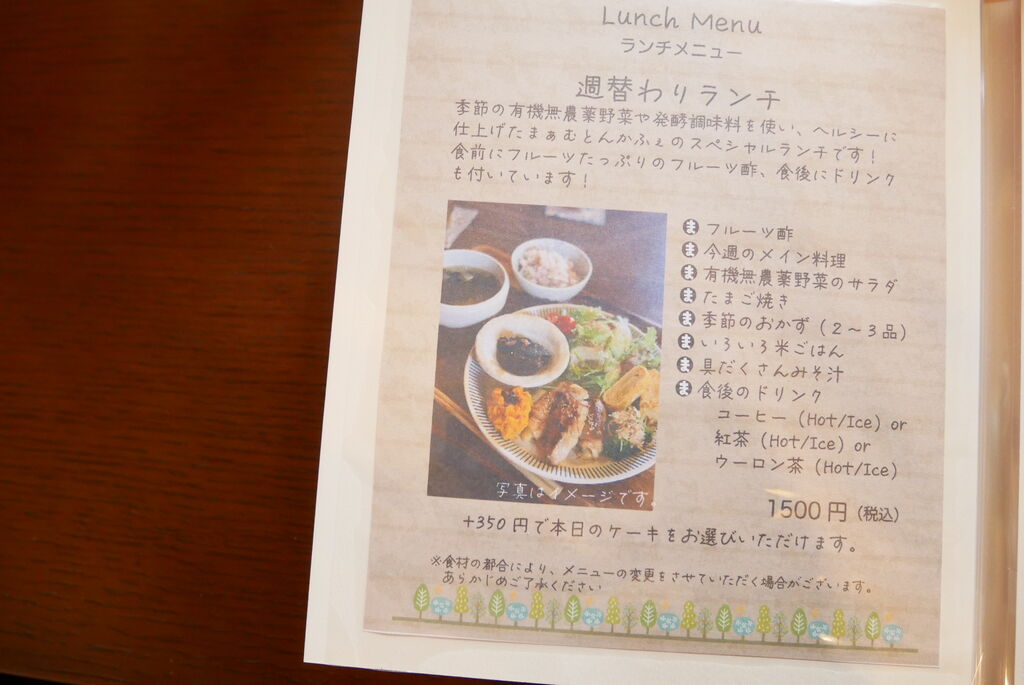 Lunch Menu
ランチメニュー
週替わりランチ
季節の有機無農薬野菜や発酵調味料を使い、ヘルシーに
仕上げたまぁむとんかふぇのスペシャルランチです！
食前にフルーツたっぷりのフルーツ酢、食後にドリンク
も付いています！
ま フルーツ酢
ま 今週のメイン料理
ま 有機無農薬野菜のサラダ
ま たまご焼き
ま 季節のおかず（２～３品）
ま いろいろ米ごはん
ま 具だくさんみそ汁
ま 食後のドリンク
コーヒー（Hot/Ice）or
紅茶（Hot/Ice）or
ウーロン茶（Hot/Ice）
写真はイメージです。
1500円（税込）
+350円で本日のケーキをお選びいただけます。
※食材の都合により、メニューの変更をさせていただく場合がございます。
あらかじめご了承ください